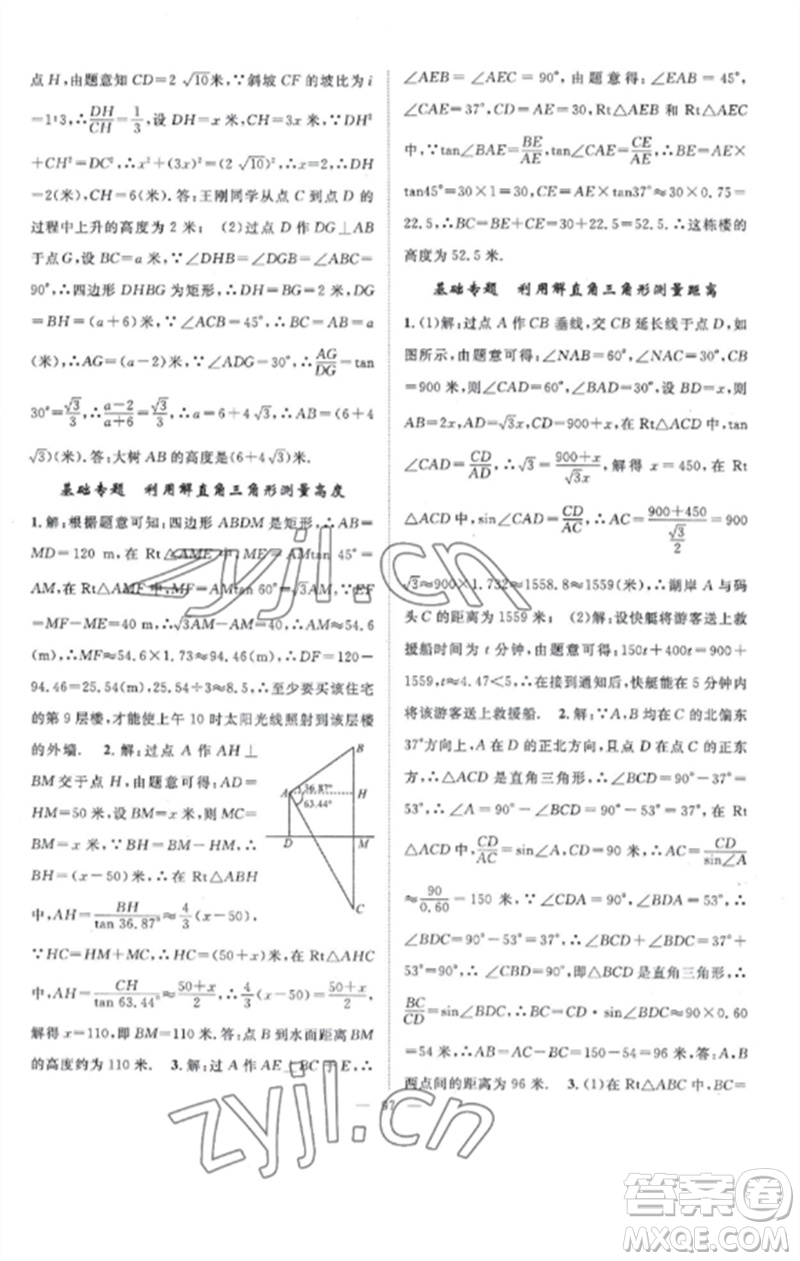 点 H,由题意知 CD=2 √10米,∵斜坡 CF 的坡比为 i
=1∶3,∴DH/CH=1/3,设 DH=x 米,CH=3x 米,∵DH²
+CH²=DC²,∴x²+(3x)²=(2√10)²,∴x=2,∴DH
=2(米),CH=6(米).答:王刚同学从点 C 到点 D 的
过程中上升的高度为 2 米; (2)过点 D 作 DG⊥AB
于点 G,设 BC=a 米,∵∠DHB=∠DGB=∠ABC=
90°,∴四边形 DHBG 为矩形,∴DH=BG=2 米,DG
=BH=(a+6)米,∵∠ACB=45°,∴BC=AB=a
(米),∴AG=(a-2)米,∵∠ADG=30°,∴AG/DG=tan
30°=√3/3,∴(a-2)/(a+6)=√3/3,∴a=6+4√3,∴AB=(6+4
√3)(米).答:大树 AB 的高度为(6+4√3)米.
基础专题 利用解直角三角形测量高度
1.解:根据题意可知:四边形 ABDM 是矩形,∴AB=
MD=120 m,在 Rt△AME 中,ME=AMtan 45°=
AM,在 Rt△AMF 中,MF=AMtan 60°=√3AM,∵EF
=MF-ME=40 m,∴√3AM-AM=40,∴AM≈54.6
(m),∴MF≈54.6×1.73≈94.46(m),∴DF=120-
94.46=25.54(m),25.54÷3≈8.5,∴至少要买该住宅
的第 9 层楼,才能使上午 10 时太阳光线照射到该层楼
的外墙. 2.解:过点 A 作 AH⊥
BM 交于点 H,由题意可得:AD=
HM=50 米,设 BM=x 米,则 MC=
BM=x 米,∵BH=BM-HM,∴
BH=(x-50)米,∴在 Rt△ABH
中,AH=BH/tan 36.87°≈4/3(x-50),
∵HC=HM+MC,∴HC=(50+x)米,∴在 Rt△AHC
中,AH=CH/tan 63.44°≈(50+x)/2,∴4/3(x-50)=(50+x)/2,
解得 x=110,即 BM=110 米.答:点 B 到水面距离 BM
的高度约为 110 米. 3.解:过 A 作 AE⊥BC 于 E,∴
B
A
36.87°
H
63.44°
D
M
C
∠AEB=∠AEC=90°,由题意得:∠EAB=45°,
∠CAE=37°,CD=AE=30,Rt△AEB 和 Rt△AEC
中,∵tan∠BAE=BE/AE,tan∠CAE=CE/AE,∴BE=AE×
tan45°=30×1=30,CE=AE×tan37°≈30×0.75=
22.5,∴BC=BE+CE=30+22.5=52.5,∴这栋楼的
高度为 52.5 米.
基础专题 利用解直角三角形测量距离
1.(1)解:过点 A 作 CB 垂线,交 CB 延长线于点 D,如
图所示,由题意可得:∠NAB=60°,∠NAC=60°,CB
=900 米,则∠CAD=60°,∠BAD=30°,设 BD=x,则
AB=2x,AD=√3x,∴CD=900+x,在 Rt△ACD 中,tan
∠CAD=CD/AD,∴√3=(900+x)/(√3x),解得 x=450,在 Rt
△ACD 中,sin∠CAD=CD/AC,∴AC=(900+450)/(√3/2)=900
√3≈900×1.732≈1558.8≈1559(米),∴湖岸 A 与码
头 C 的距离为 1559 米; (2)解:设快艇将游客送上救
援船时间为 t 分钟,由题意可得:150t+400t=900+
1559,∴t≈4.47<5,∴接到通知后,快艇能在 5 分钟内
将该游客送上救援船. 2.解:∵A、B 均在 C 的北偏东
37°方向上,A 在 D 的正北方向,且点 D 在点 C 的正东方
向,∴△ACD 是直角三角形,∴∠BCD=90°-37°=
53°,∴∠A=90°-∠BCD=90°-53°=37°,∴在 Rt
△ACD 中,CD/AC=sin∠A,CD=90 米,∴AC=CD/sin∠A
≈90/0.60=150 米,∵∠CDA=90°,∠BDA=53°,∴
∠BDC=90°-53°=37°,∴∠BCD+∠BDC=37°+
53°=90°,∴∠CBD=90°,即△BCD 是直角三角形,∴
BC/CD=sin∠BDC,∴BC=CD·sin∠BDC≈90×0.60
=54 米,∴AB=AC-BC=150-54=96 米.答:A、B
两点间的距离为 96 米. 3.(1)在 Rt△ABC 中,BC=
zyjl.cn
zyjl.cn
答案圈
MXQE.COM